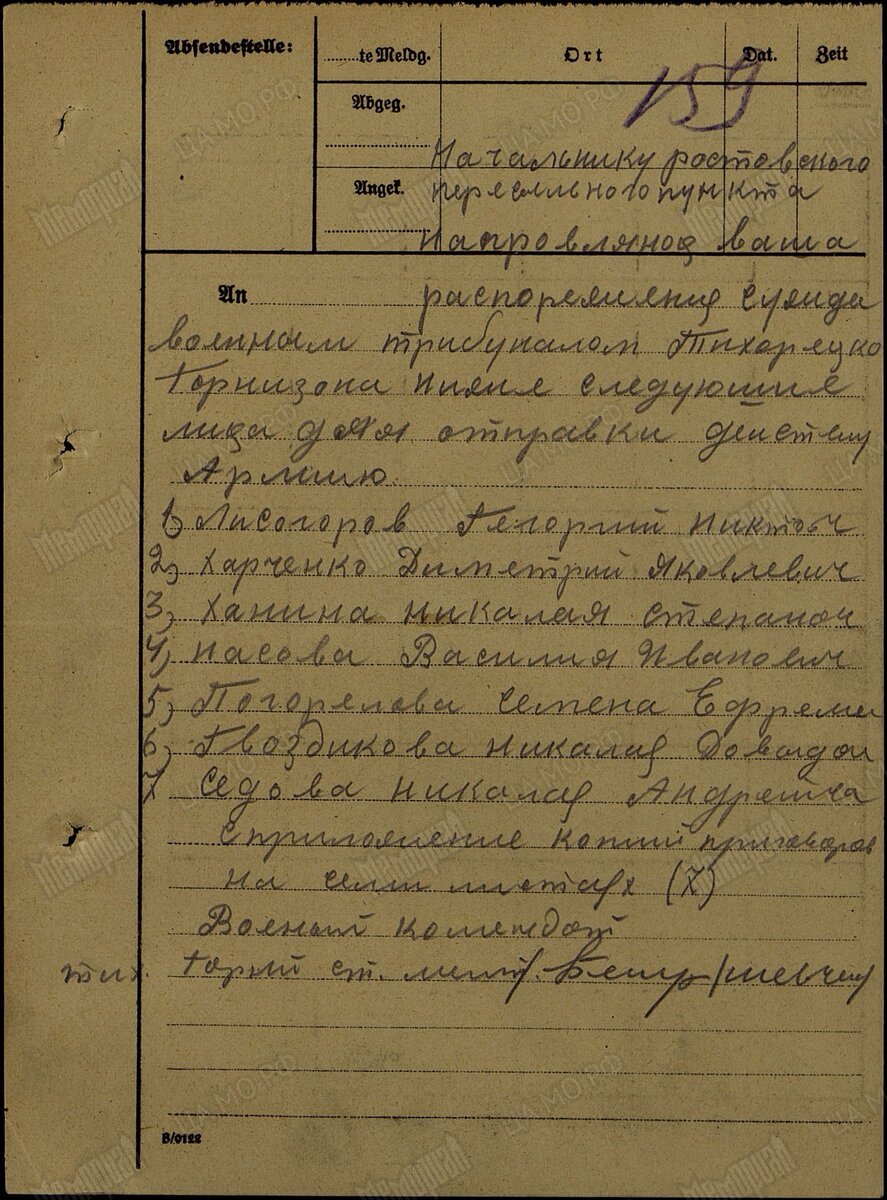 Absendestelle:
......te Meldg.
Ort
Dat.
Zeit
159
Abgeg.
Начальнику ростовского
Angek.
пересильного пункта
Напровляюся ваша
An
распореження
военным трибуналом Тихорецко
Горнизона ниже следующие
лица для отправки действ
Армию.
1) Лисогоров Гегоргий
2) Харченко Диметрий Яковлевич
3) Ханина Николая Степаноч
4) Насова Василия Иванович
5) Погорелова Семена Ефреми
6) Гвоздикова Николая
7 Седова Николая Андреича
с приложение копий приговоров
на семи листах (7)
Военый комендат
тих. Горний ст. лейт/
B/0122
Мемориал
ЦАМО.РФ